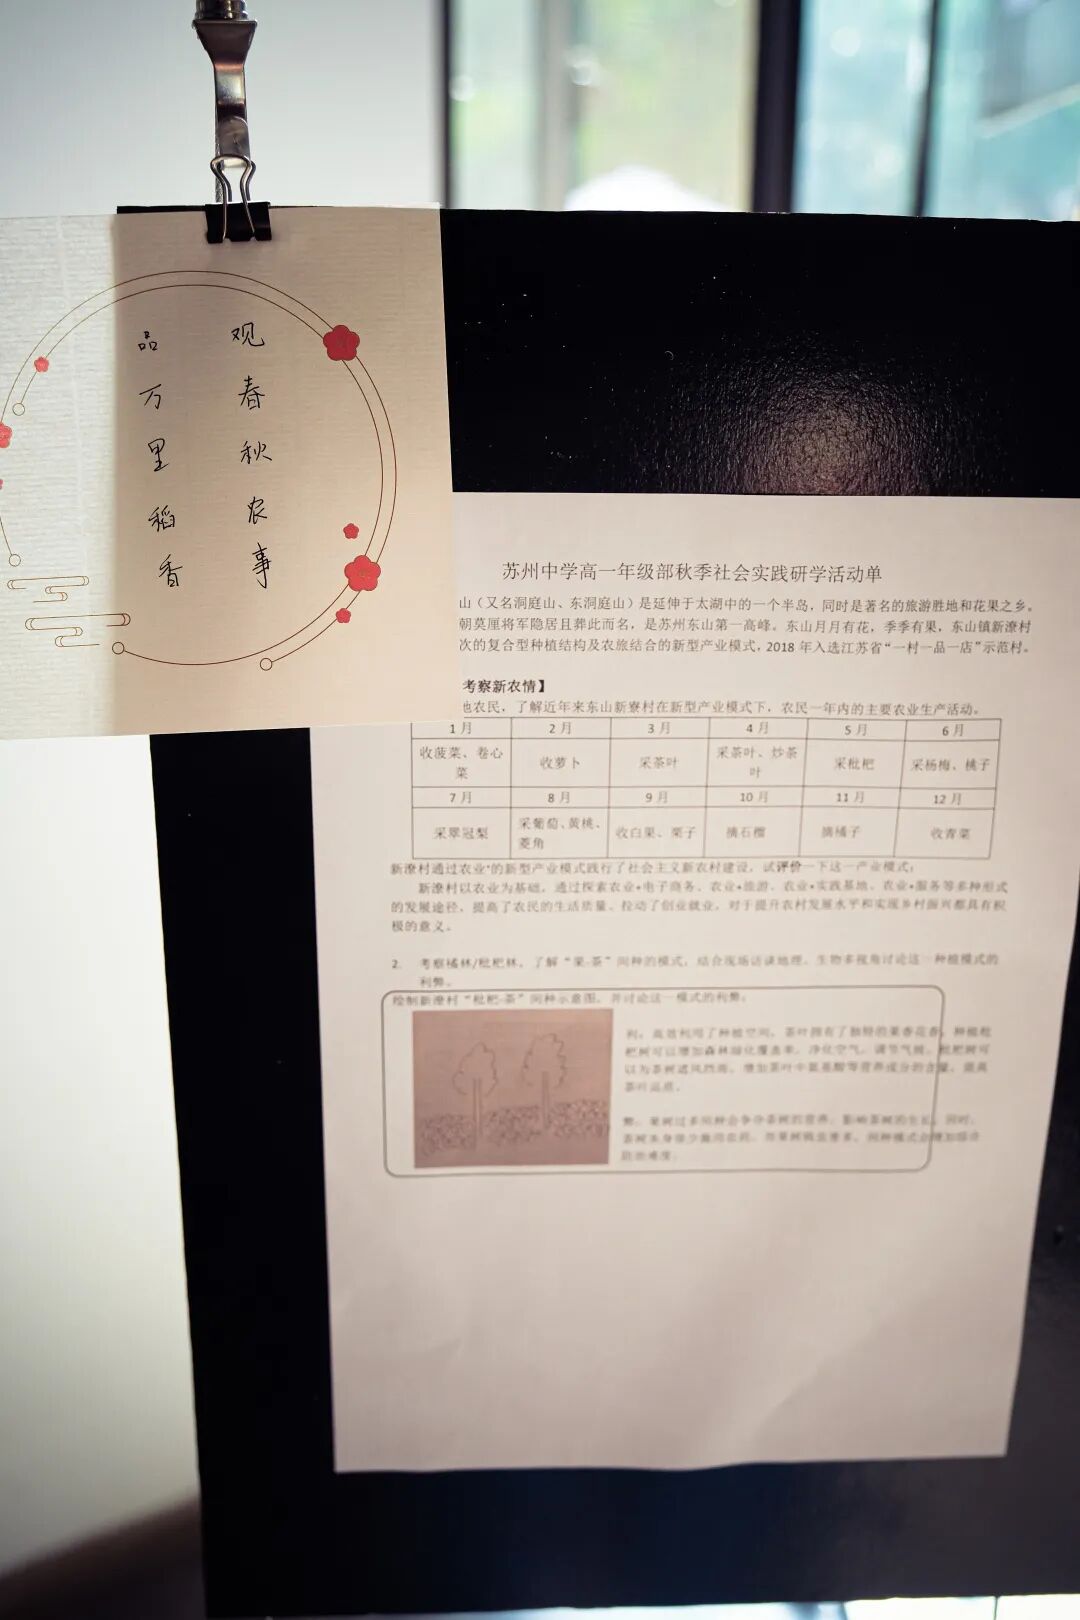 观春秋农事
品万里稻香
苏州中学高一年级部秋季社会实践研学活动单
山（又名洞庭山、东洞庭山）是延伸于太湖中的一个半岛，同时是著名的旅游胜地和花果之乡。
朝莫厘将军隐居且葬此而名，是苏州东山第一高峰。东山月月有花，季季有果，东山镇新潦村
次的复合型种植结构及农旅结合的新型产业模式，2018 年入选江苏省“一村一品一店”示范村。
考察新农情】
地农民，了解近年来东山新寮村在新型产业模式下，农民一年内的主要农业生产活动。
1 月 2 月 3 月 4 月 5 月 6 月
收菠菜、卷心菜 收萝卜 采茶叶 采茶叶、炒茶叶 采枇杷 采杨梅、桃子
7 月 8 月 9 月 10 月 11 月 12 月
采翠冠梨 采葡萄、黄桃、菱角 收白果、栗子 摘石榴 摘橘子 收青菜
新潦村通过农业+的新型产业模式践行了社会主义新农村建设，试评价一下这一产业模式：
新潦村以农业为基础，通过探索农业+电子商务、农业+旅游、农业+实践基地、农业+服务等多种形式
的发展途径，提高了农民的生活质量、拉动了创业就业，对于提升农村发展水平和实现乡村振兴都具有积
极的意义。
2. 考察橘林/枇杷林，了解“果-茶”间种的模式，结合现场访谈地理、生物多视角讨论这一种植模式的
利弊。
绘制新潦村“枇杷-茶”间种示意图，并讨论这一模式的利弊：
利：高效利用了种植空间，茶叶拥有了独特的果香花香，种植枇
杷树可以增加森林绿化覆盖率，净化空气，调节气候，枇杷树可
以为茶树遮风挡雨，增加茶叶中氨基酸等营养成分的含量，提高
茶叶品质。
弊：果树过多间种会争夺茶树的营养，影响茶树的生长，同时，
茶树本身很少施用农药，而果树病虫害多，间种模式会增加综合
防治难度。